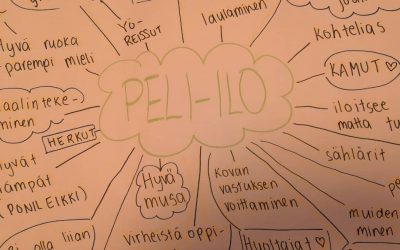 YÖ-
REISSUT
laulaminen
Hyvä ruoka
parempi mieli
kohtelias
KAMUT ♡
PELI-ILO
aalinteke-
minen
HERKUT
iloitsee
matta tu
sählärit
Hyvä
musa
Kovan
vastuksen
voittaminen
(PONILEIKKI)
muiden
minen
olla liian
virheistä oppi-
Huoltajat ♡